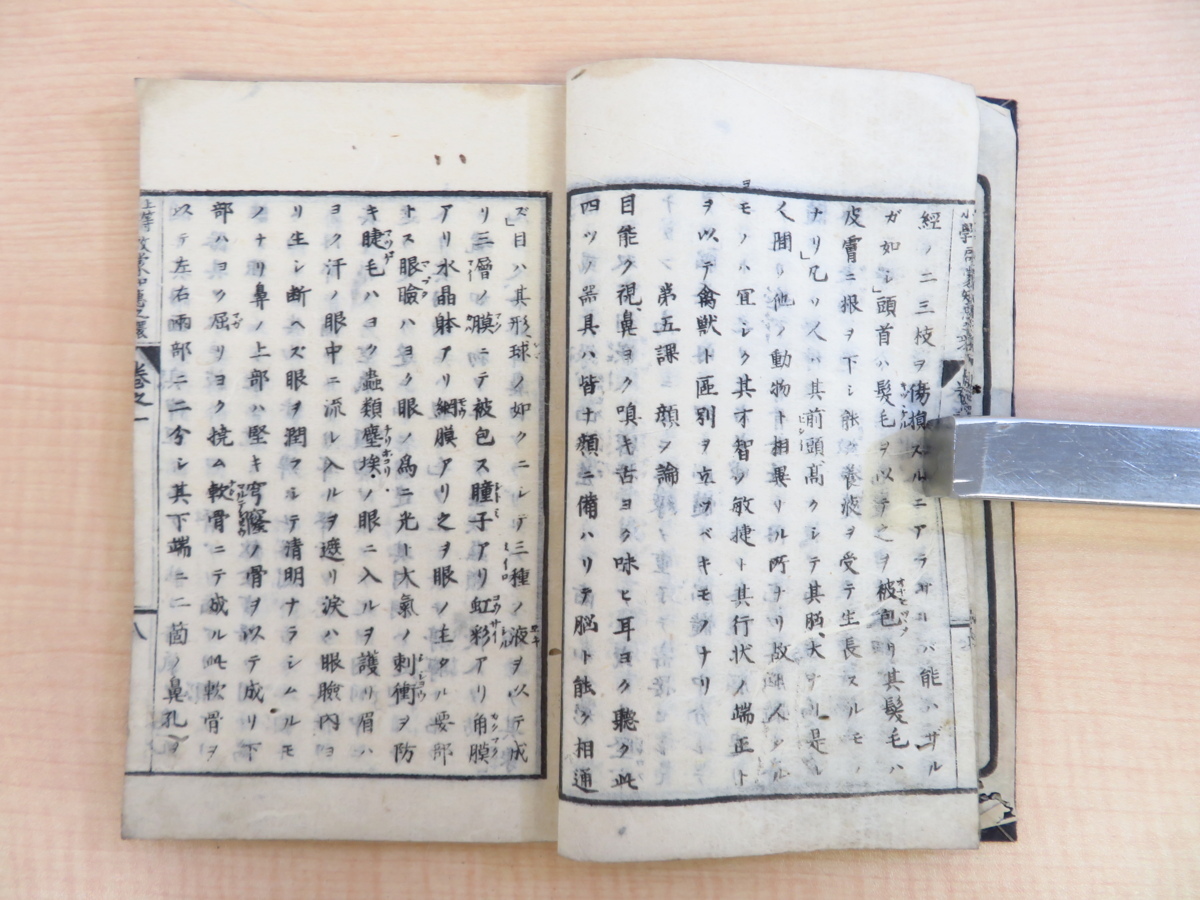 經ノ二三枝ヲ傷損スルニアラザレバ能ハザル
ガ如シ」頭首ハ髮毛ヲ以テ之ヲ被包リ其髮毛ハ
皮膚ニ根ヲ下シ能ク養液ヲ受テ生長スルモノ
ナリ」凡リ人ハ其前頭髙クシテ其脳、大ナル是レ
人間ノ他ノ動物ト相異リル所ナリ故ニ人タル
モノハ宜シク其才智ノ敏捷ト其行状ノ端正ト
ヲ以テ禽獣ト區別ヲ立ツベキモノナリ
第五課 顔ヲ論ズ
目能ク視、鼻ヨク嗅キ舌ヨク味ヒ耳ヨク聽ク此
四ツノ器具ハ皆ナ頭ニ備ハリテ脳ト能ク相通
ズ」目ハ其形球ノ如クニシテ三種ノ液ヲ以テ成
リ三層ノ膜ニテ被包ス瞳子アリ虹彩アリ角膜
アリ水晶躰アリ網膜アリ之ヲ眼ノ主タル要部
トス眼瞼ハヨク眼ノ爲ニ光ト大氣ノ刺衝ヲ防
キ睫毛ハヨク蟲類塵埃ノ眼ニ入ルヲ護リ眉ハ
ヨク汗ノ眼中ニ流レ入ルヲ遮リ淚ハ眼瞼内ヨ
リ生シ断ヘズ眼ヲ潤ラシテ清明ナラシムルモ
ノナリ鼻ノ上部ハ堅キ穹窿ノ骨ヲ以テ成リ下
部ハヨク屈リヨク撓ム軟骨ニテ成ル此軟骨ヲ
以テ左右兩部ニ二分シ其下端ニ二箇ノ鼻孔ヲ
卷之一
八